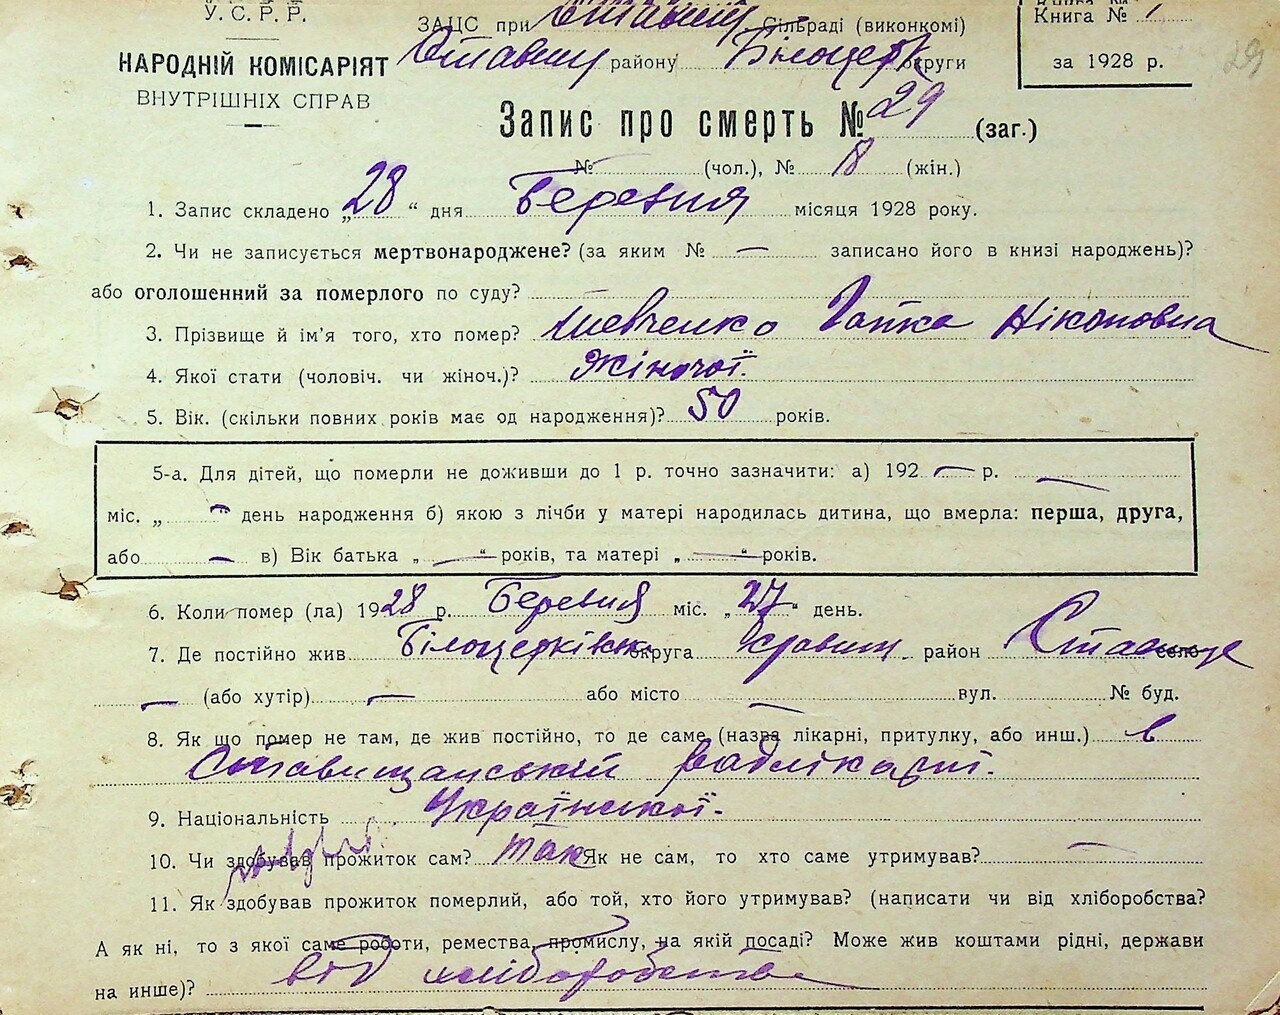 У.С.Р.Р.
НАРОДНІЙ КОМІСАРІЯТ
ВНУТРІШНІХ СПРАВ
ЗАЦС при Ставищ Сільраді (виконкомі)
Ставищ району Білоцерк округи
Книга №
за 1928 р.
29
Запис про смерть № 29 (заг.)
№ (чол.), № 18 (жін.)
1. Запис складено „28“ дня Березня місяця 1928 року.
2. Чи не записується мертвонароджене? (за яким № — записано його в книзі народжень)?
або оголошенний за померлого по суду?
3. Прізвище й ім'я того, хто помер? Шевченко Гапка Ніконовна
4. Якої стати (чоловіч. чи жіноч.)? Жіночої.
5. Вік. (скільки повних років має од народження)? 50 років.
5-а. Для дітей, що померли не доживши до 1 р. точно зазначити: а) 192 — р. —
міс. „ — “ день народження б) якою з лічби у матері народилась дитина, що вмерла: перша, друга,
або — в) Вік батька „ — “ років, та матері „ — “ років.
6. Коли помер (ла) 1928 р. Березня міс. „27“ день.
7. Де постійно жив Білоцерківськ округа район село
— (або хутір) — або місто — вул. № буд.
8. Як що помер не там, де жив постійно, то де саме (назва лікарні, притулку, або инш.) в
Ставищанській райлікарні.
9. Національність Української.
10. Чи здобував прожиток сам? так Як не сам, то хто саме утримував? —
11. Як здобував прожиток померлий, або той, хто його утримував? (написати чи від хліборобства?
А як ні, то з якої саме роботи, ремества, промислу, на якій посаді? Може жив коштами рідні, держави
на инше)? від хліборобства